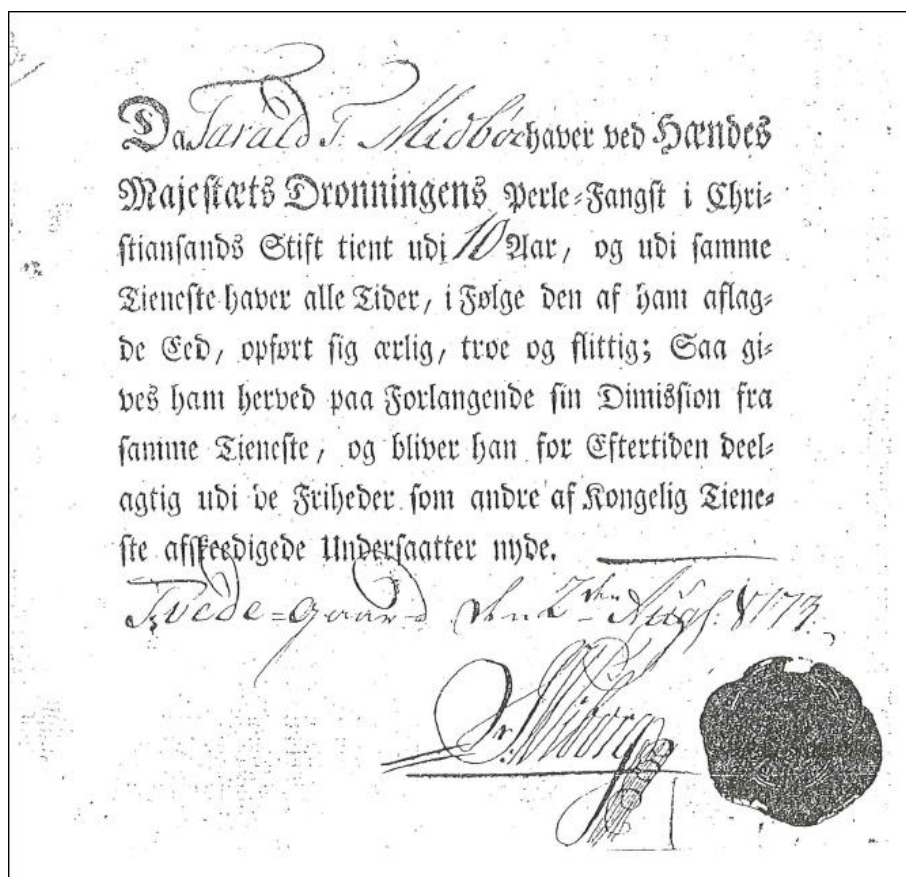 Da Tarald T. Midböe haver ved Hændes
Majestæts Dronningens Perle-Fangst i Chri-
stiansands Stift tient udi 10 Aar, og udi samme
Tieneste haver alle Tider, i Følge den af ham aflag-
de Eed, opført sig ærlig, troe og flittig; Saa gi-
ves ham herved paa Forlangende sin Dimission fra
samme Tieneste, og bliver han for Eftertiden deel-
agtig udi de Friheder som andre af Kongelig Tiene-
ste afskeedigede Undersaatter nyde.
Tvede-Gaard den 2den Aug. 1773.
Wiborg